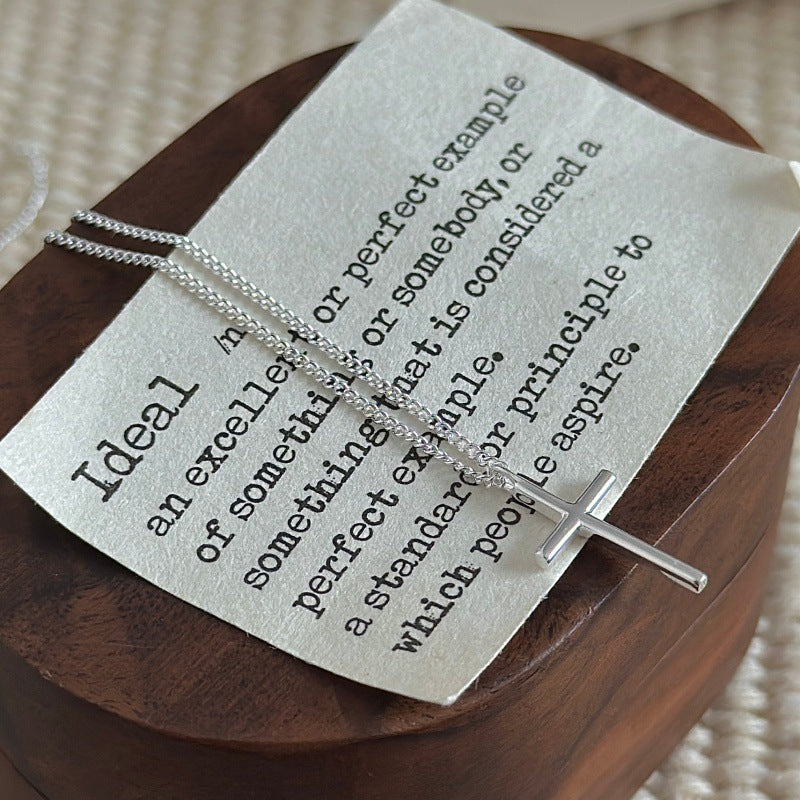 Ideal /n
an excellent or perfect example
of something or somebody, or
something that is considered a
perfect example.
a standard or principle to
which people aspire.